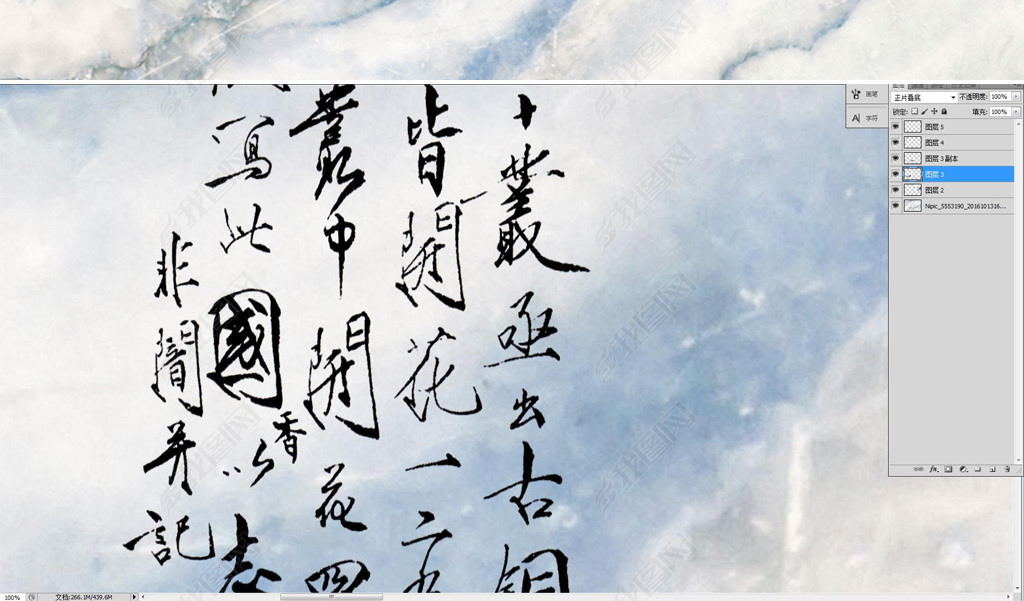 十叢
亟出古銅
皆開花一二五
叢中開花四
寫此國香以志
非闇并記
画笔
字符
正片叠底
不透明度: 100%
锁定:
填充: 100%
图层 5
图层 4
图层 3 副本
图层 3
图层 2
Nipic_5553190_2016101316...
100%
文档:266.1M/439.6M
我图网